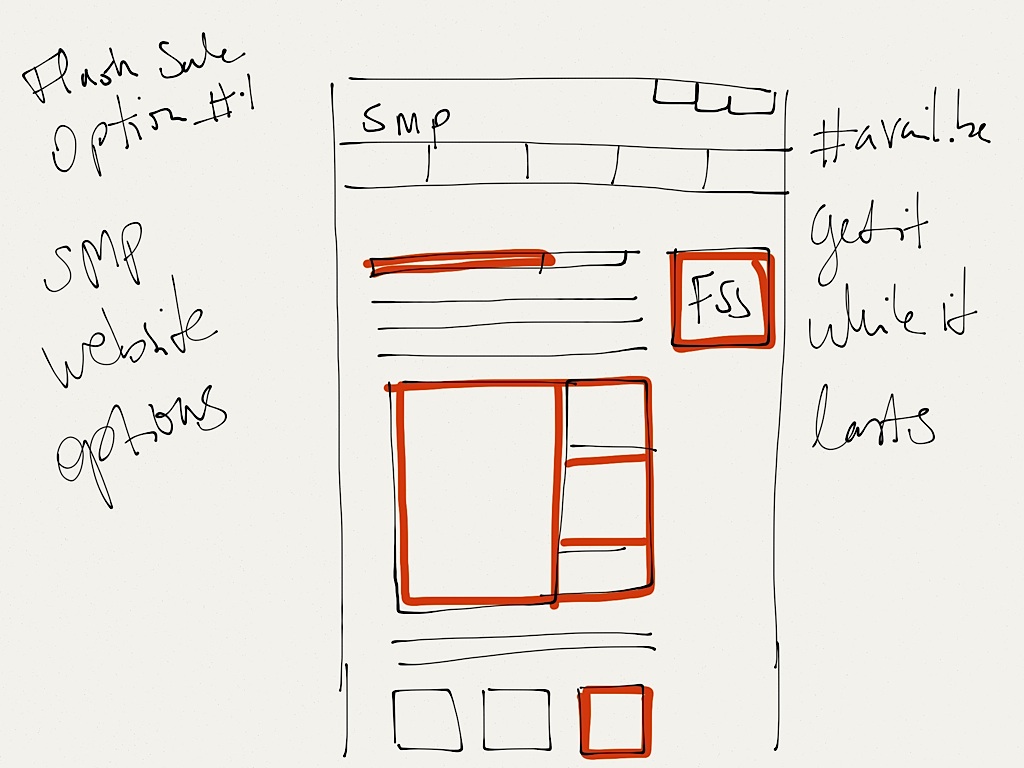 Flash Sale
Option #1
SMP
website
options
SMP
FSS
#avail.be
get it
while it
lasts